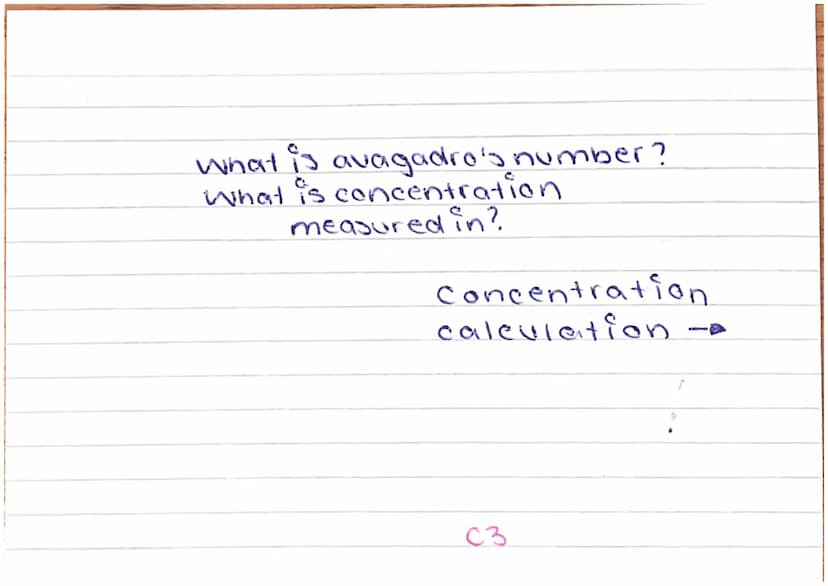 What is avagadro's number?
What is concentration
measured in?
concentration
calculation →
C3